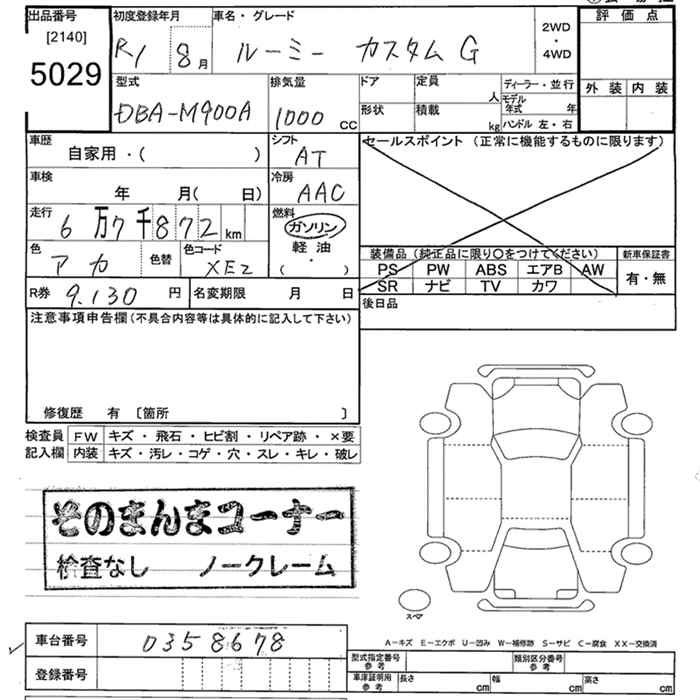 出品番号 [2140] 5029
初度登録年月 R1 8月
車名・グレード ルーミー カスタムG
2WD・4WD
評価点
外装 内装
型式 DBA-M900A
排気量 1000 CC
ドア
定員 人
形状
積載 kg
ディーラー・並行
モデル年式 年
ハンドル 左・右
車歴 自家用・( )
シフト AT
セールスポイント (正常に機能するものに限ります)
車検 年 月( 日)
冷房 AAC
走行 6万7千872km
燃料 ガソリン 軽油 ・ ( )
色 アカ 色替
色コード XE2
装備品(純正品に限り○をつけてください)
PS PW ABS エアB AW
SR ナビ TV カワ
新車保証書 有・無
R券 9,130 円
名変期限 月 日
後日品
注意事項申告欄(不具合内容等は具体的に記入して下さい)
修復歴 有 〔箇所 〕
検査員記入欄
FW キズ・飛石・ヒビ割・リペア跡・×要
内装 キズ・汚レ・コゲ・穴・スレ・キレ・破レ
そのまんまコーナー
検査なし ノークレーム
スペア
車台番号 0358678
登録番号
A-キズ E-エクボ U-凹み W-補修跡 S-サビ C-腐食 XX-交換済
型式指定番号 参考
類別区分番号 参考
車庫証明用 参考
長さ cm 幅 cm 高さ cm